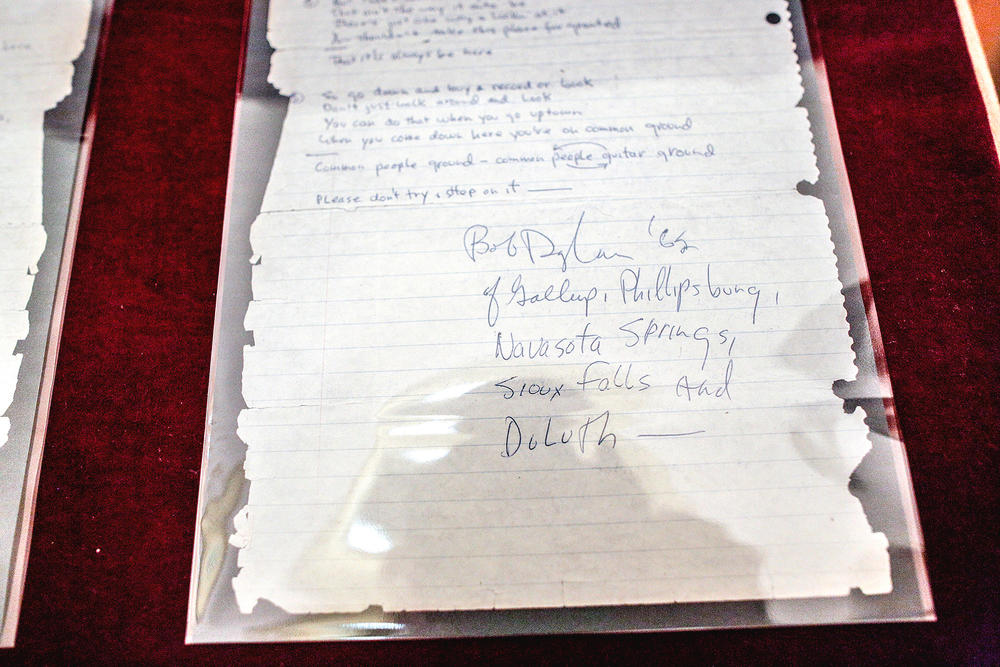 That isn't the way it
There's just one way to look at it
this place for granted
That it'll always be here
So go down and buy a record or book
Don't just walk around and look
You can do that when you go uptown
When you come down here you're on common ground
Common people ground – common people guitar ground
Please don't try & step on it —
Bob Dylan '62
of Gallup, Phillipsburg,
Navasota Springs,
Sioux Falls And
Duluth —